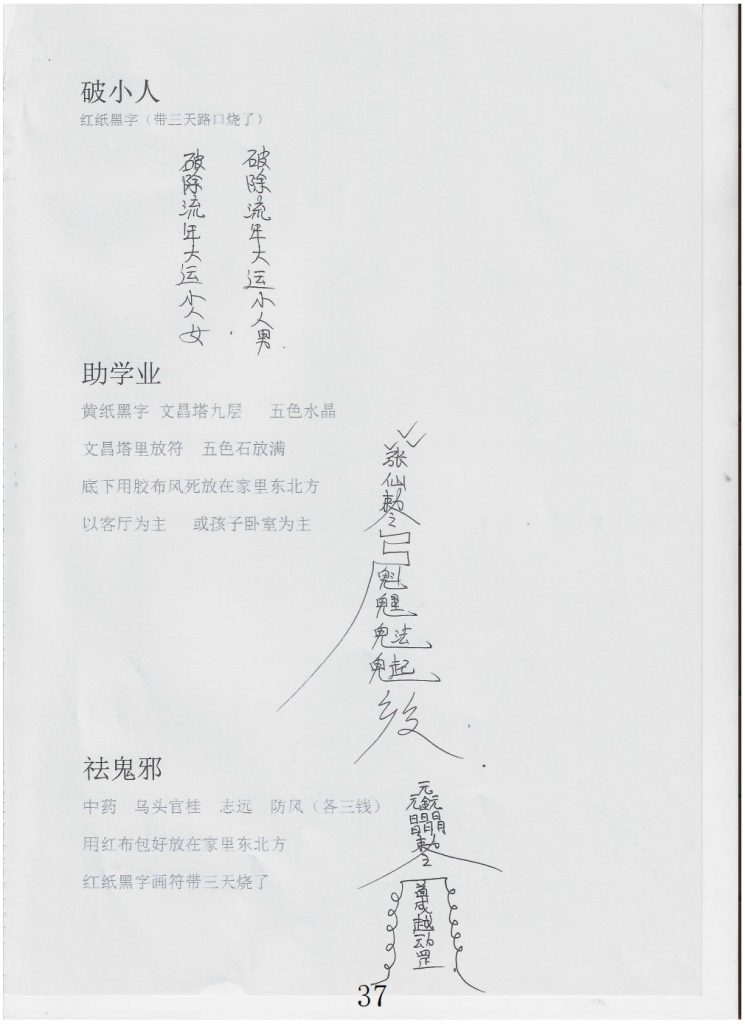 破小人
红纸黑字（带三天路口烧了）
破除流年大运小人男
破除流年大运小人女
助学业
黄纸黑字 文昌塔九层 五色水晶
文昌塔里放符 五色石放满
底下用胶布风死放在家里东北方
以客厅为主 或孩子卧室为主
张仙敕令
魁
祛鬼邪
中药 乌头官桂 志远 防风（各三钱）
用红布包好放在家里东北方
红纸黑字画符带三天烧了
37